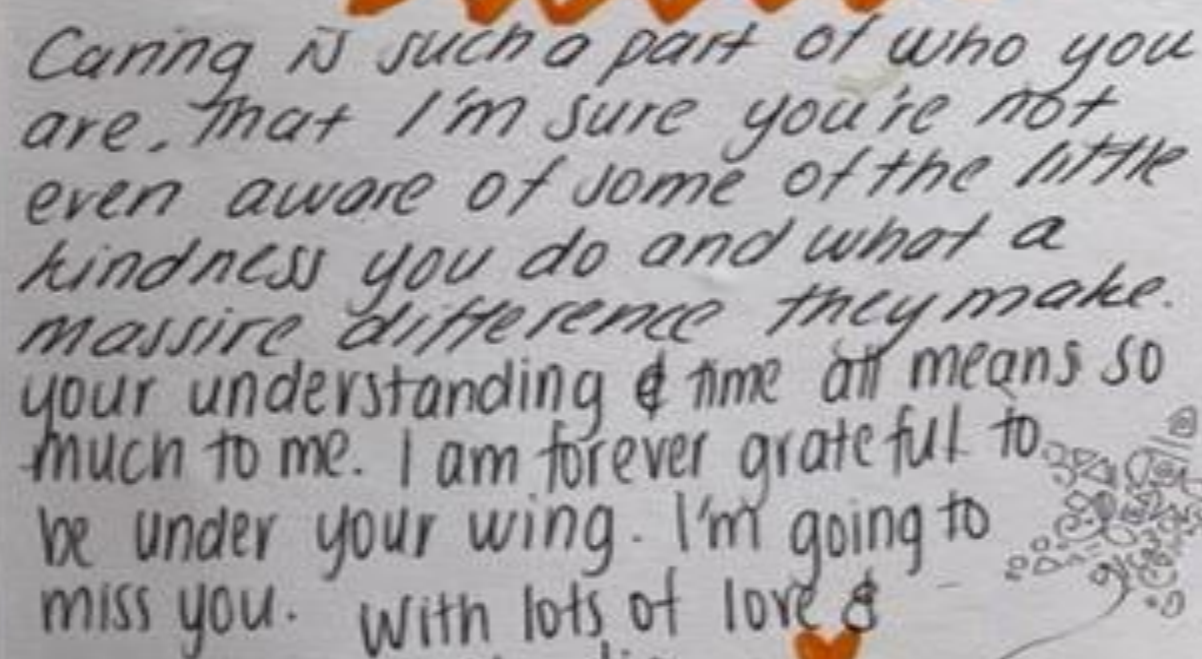 Caring is such a part of who you
are. That I'm sure you're not
even aware of some of the little
kindness you do and what a
massive difference they make.
your understanding & time all means so
much to me. I am forever grateful to
be under your wing. I'm going to
miss you. With lots of love &